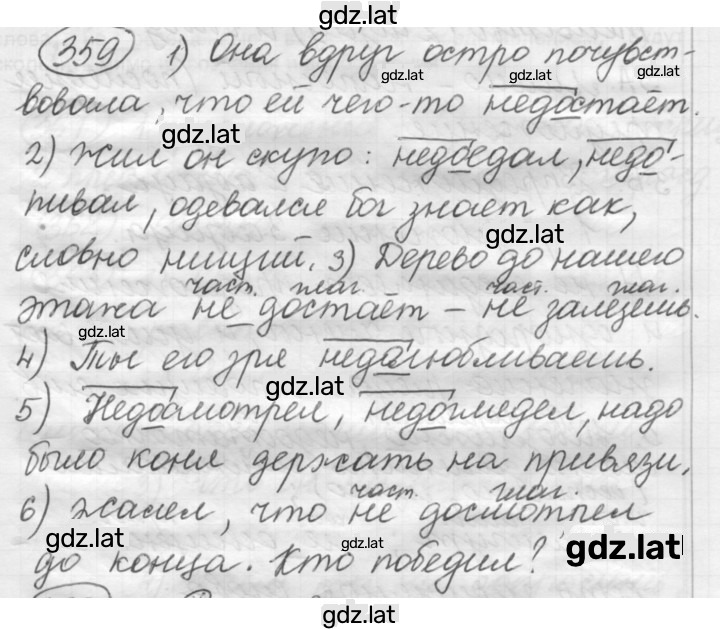 gdz.lat
359 1) Она вдруг остро почувст-
gdz.lat gdz.lat gdz.lat
вовала, что ей чего-то недостаёт.
gdz.lat
2) Жил он скупо: недоедал, недо-
пивал, одевался бог знает как,
gdz.lat
словно нищий. 3) Дерево до нашего
част. глаг. част. глаг.
этажа не достаёт – не залезешь.
gdz.lat
4) Ты его зря недолюбливаешь.
gdz.lat
5) Недосмотрел, недоглядел, надо
было коня держать на привязи.
част. глаг.
6) Жалел, что не досмотрел
gdz.lat gdz.lat gdz.lat
до конца. Кто победил?
gdz.lat